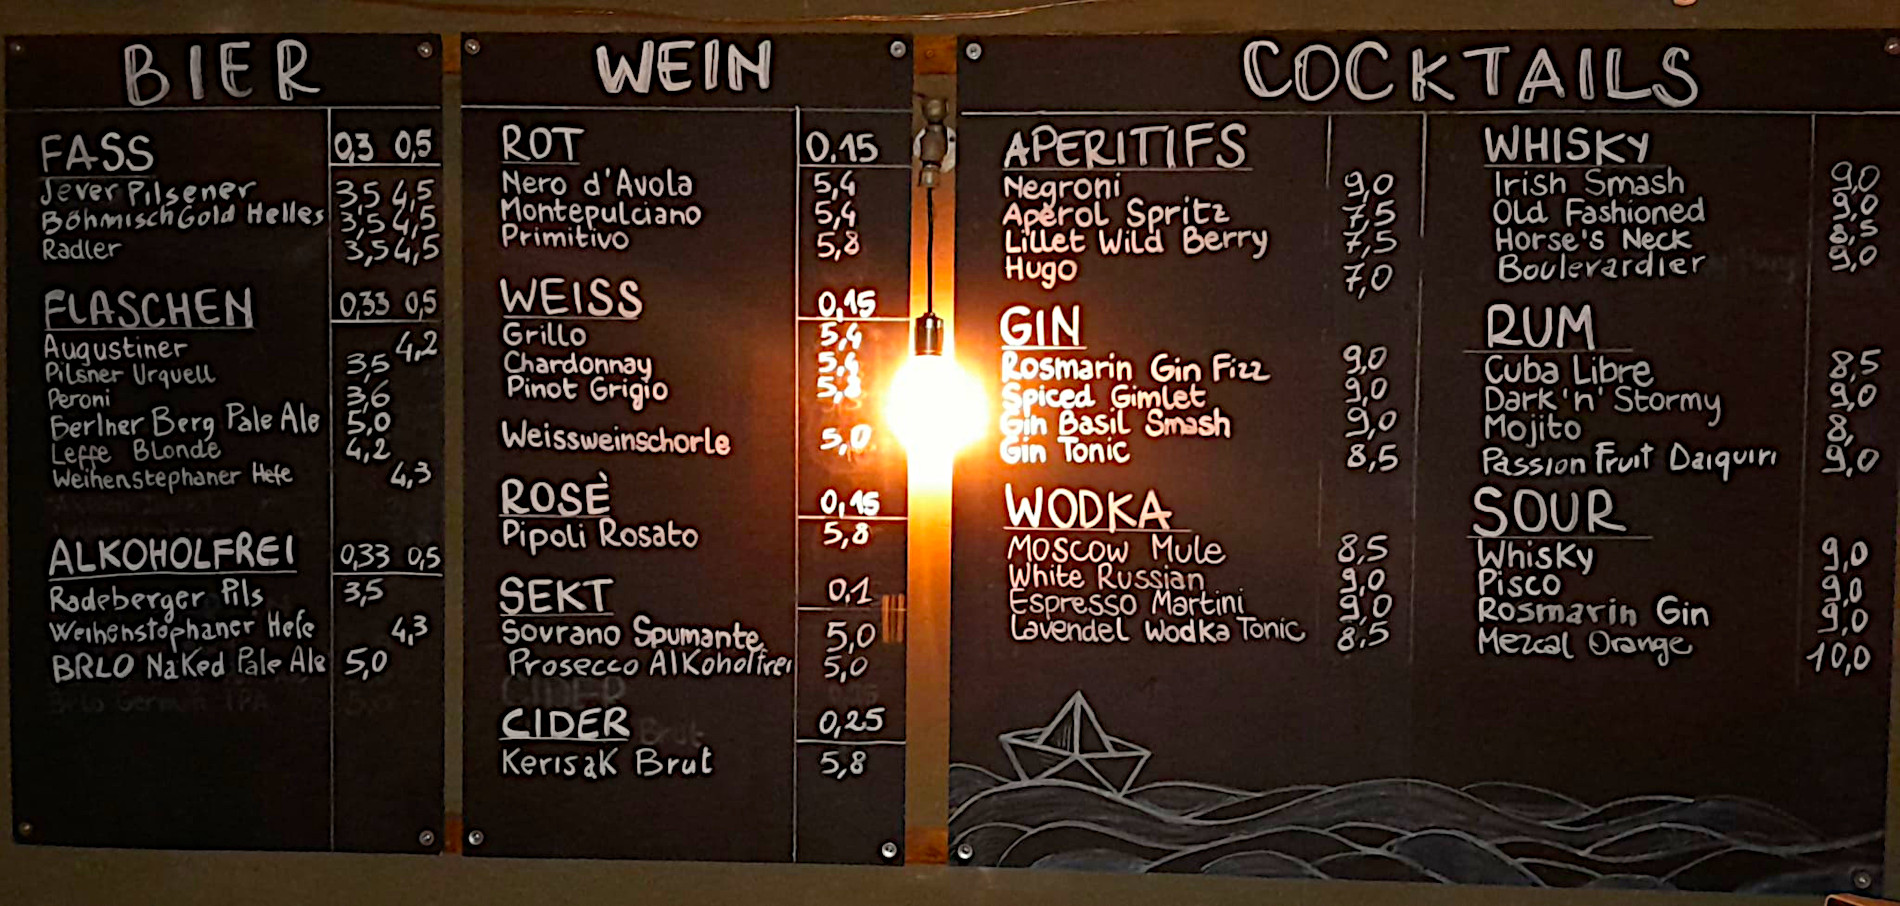 BIER
FASS 0,3 0,5
Jever Pilsener 3,5 4,5
Böhmisch Gold Helles 3,5 4,5
Radler 3,5 4,5
FLASCHEN 0,33 0,5
Augustiner 4,2
Pilsner Urquell 3,5
Peroni 3,6
Berliner Berg Pale Ale 5,0
Leffe Blonde 4,2
Weihenstephaner Hefe 4,3
ALKOHOLFREI 0,33 0,5
Radeberger Pils 3,5
Weihenstephaner Hefe 4,3
BRLO Naked Pale Ale 5,0
WEIN
ROT 0,15
Nero d'Avola 5,4
Montepulciano 5,4
Primitivo 5,8
WEISS 0,15
Grillo 5,4
Chardonnay 5,4
Pinot Grigio 5,8
Weissweinschorle 5,0
ROSÈ 0,15
Pipoli Rosato 5,8
SEKT 0,1
Sovrano Spumante 5,0
Prosecco Alkoholfrei 5,0
CIDER 0,25
Kerisak Brut 5,8
COCKTAILS
APERITIFS
Negroni 9,0
Aperol Spritz 7,5
Lillet Wild Berry 7,5
Hugo 7,0
GIN
Rosmarin Gin Fizz 9,0
Spiced Gimlet 9,0
Gin Basil Smash 9,0
Gin Tonic 8,5
WODKA
Moscow Mule 8,5
White Russian 9,0
Espresso Martini 9,0
Lavendel Wodka Tonic 8,5
WHISKY
Irish Smash 9,0
Old Fashioned 9,0
Horse's Neck 8,5
Boulevardier 9,0
RUM
Cuba Libre 8,5
Dark 'n' Stormy 9,0
Mojito 8,
Passion Fruit Daiquiri 9,0
SOUR
Whisky 9,0
Pisco 9,0
Rosmarin Gin 9,0
Mezcal Orange 10,0